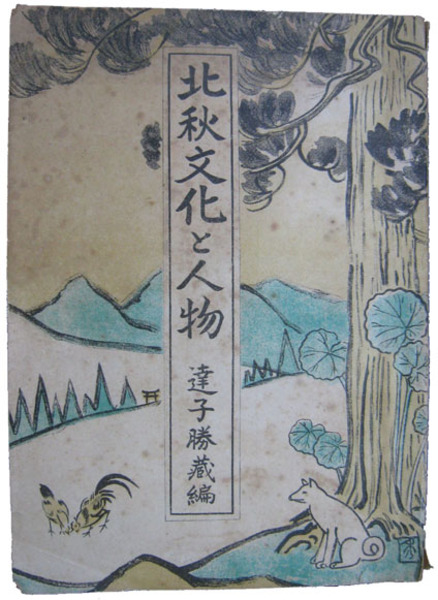 北秋文化と人物
達子勝蔵編